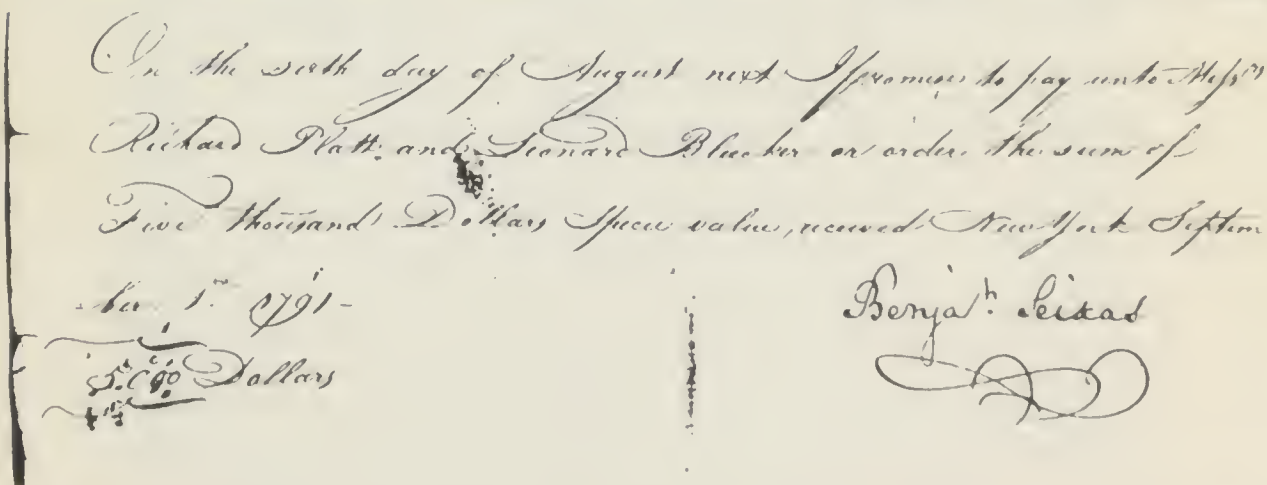 On the sixth day of August next I promise to pay unto Messrs
Richard Platt and Leonard Bleecker or order the sum of
Five thousand Dollars Specie value, received New York Septem
ber 1st 1791 -
5.000 Dollars
Benja.n Seixas